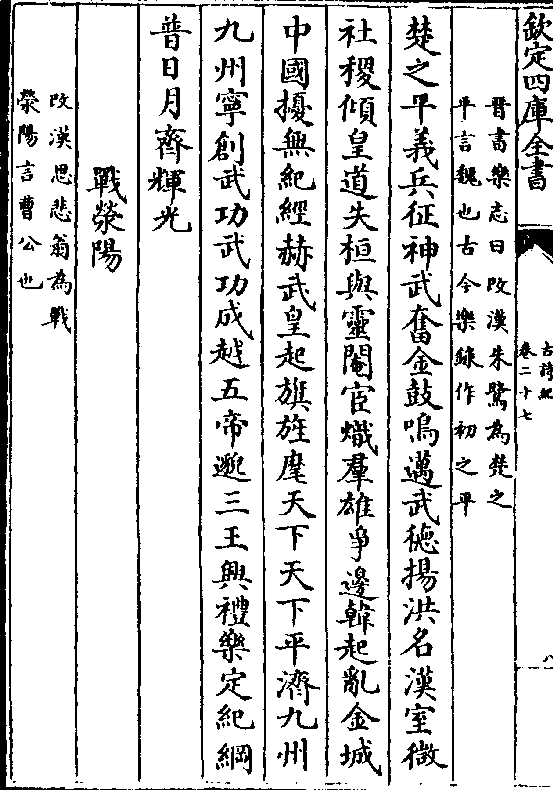 欽定四庫全書
古詩紀
卷二十七
八
晉書樂志曰改漢朱鷺為楚之
平言魏也古今樂錄作初之平
楚之平義兵征神武奮金鼓鳴邁武德揚洪名漢室微
社稷傾皇道失桓與靈閹宦熾羣雄爭邊韓起亂金城
中國擾無紀經赫武皇起旗旌麾天下天下平濟九州
九州寧創武功武功成越五帝邈三王興禮樂定紀綱
普日月齊輝光
戰滎陽
改漢思悲翁為戰
滎陽言曹公也